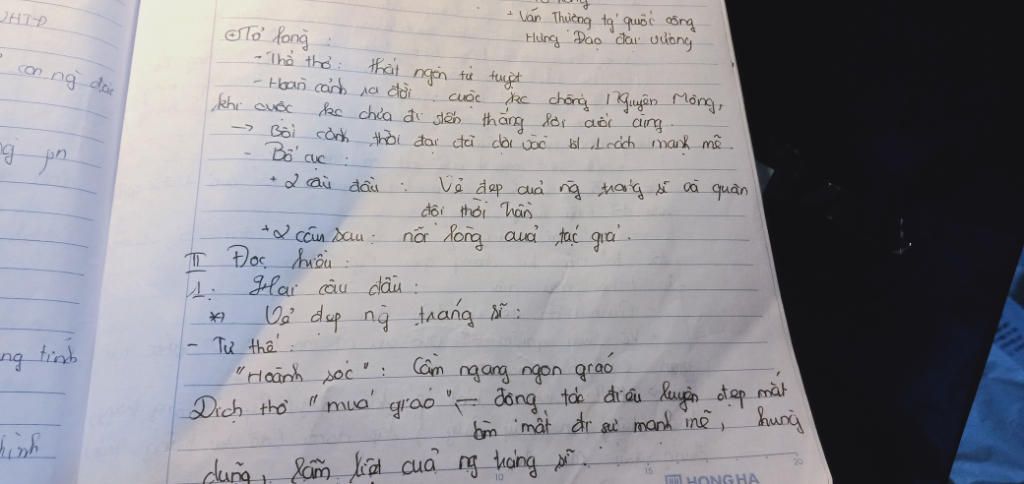 + Văn Thường tg' quốc công
Hưng Đạo đại vương
Tỏ lòng :
- Thể thơ : thất ngôn tứ tuyệt
- Hoàn cảnh ra đời : cuộc kc chống Nguyên Mông,
khi cuộc kc chưa đi đến thắng lợi cuối cùng.
→ Bối cảnh thời đại
1 cách mạnh mẽ.
- Bố cục :
+ 2 câu đầu : Vẻ đẹp của ng tráng sĩ và quân
đội thời Trần
+ 2 câu sau : nỗi lòng của tác giả.
II Đọc hiểu :
1. Hai câu đầu :
* Vẻ đẹp ng tráng sĩ :
- Tư thế :
"Hoành sóc" : Cầm ngang ngọn giáo
Dịch thơ "múa giáo" ← động tác điêu luyện, đẹp mắt
mất đi sự mạnh mẽ, hùng
dũng, lẫm liệt của ng tráng sĩ.
con ng
ng tính
hình
HONG HA
10
15
20